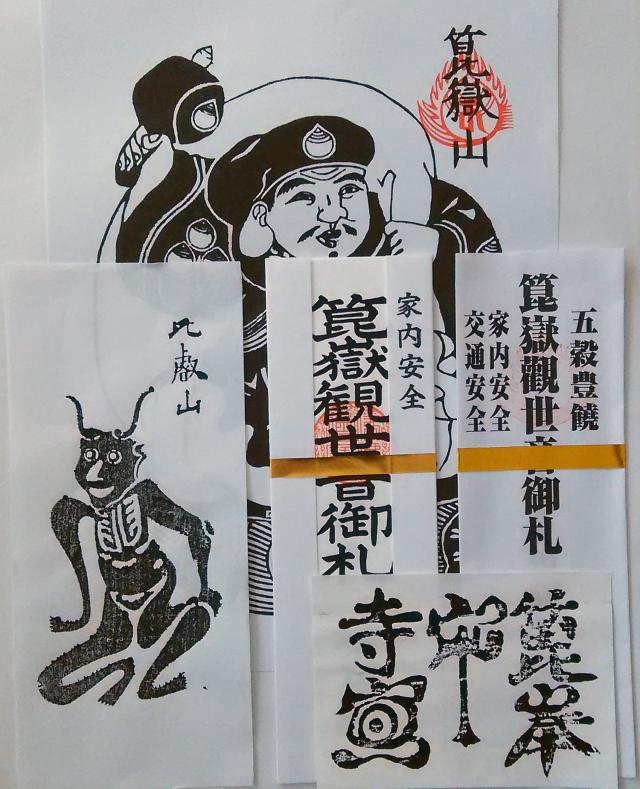 箟嶽山
比叡山
家内安全
箟嶽観世音御札
五穀豊饒
箟嶽觀世音御札
家内安全
交通安全
箟峯
寺